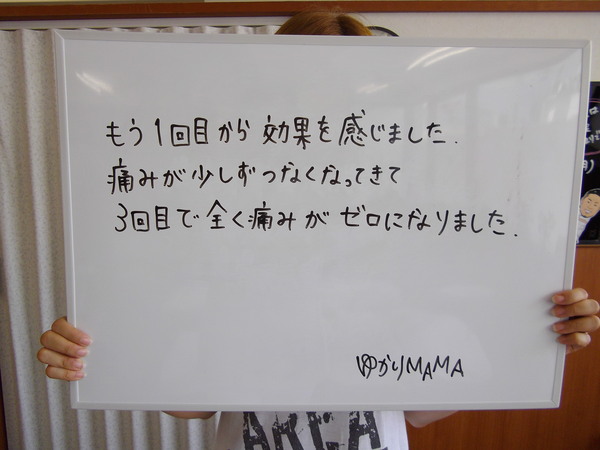 もう1回目から効果を感じました.
痛みが少しずつなくなってきて
3回目で全く痛みがゼロになりました.
ゆかりMAMA